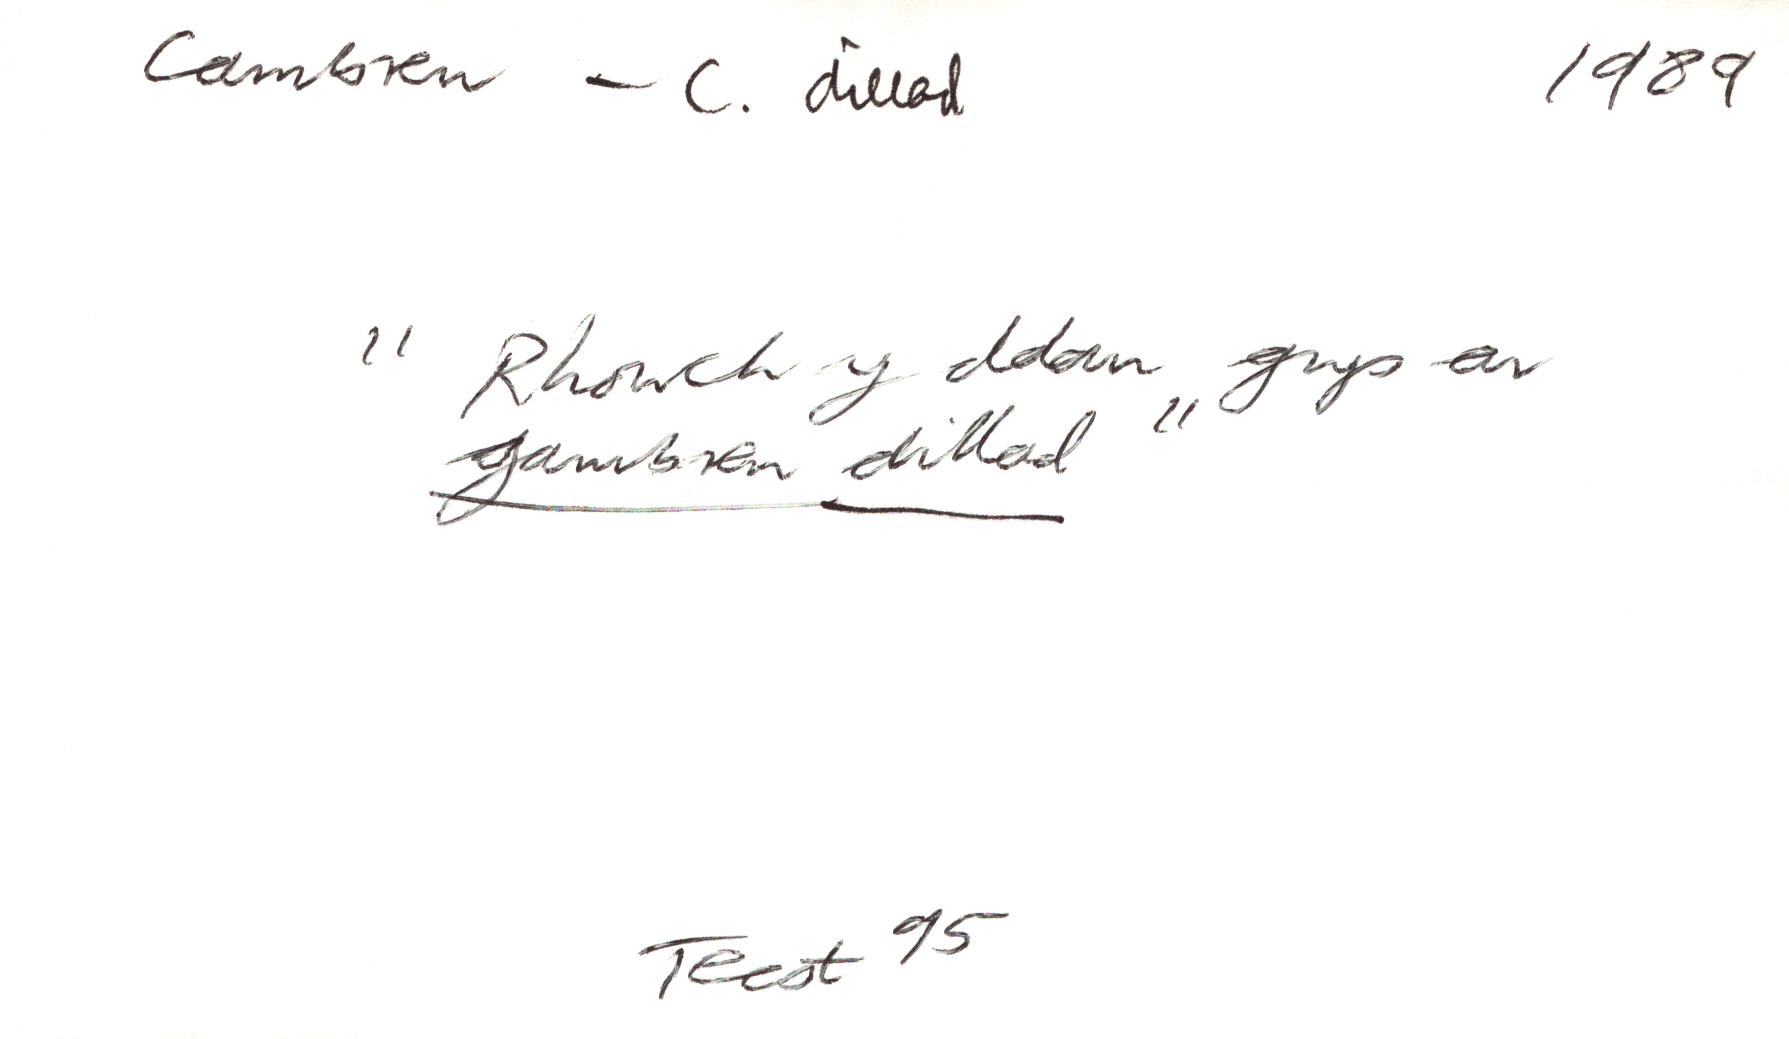 Cambren – C. dillad 1989
" Rhowch y ddau grys ar
gambren dillad "
Tecst 95